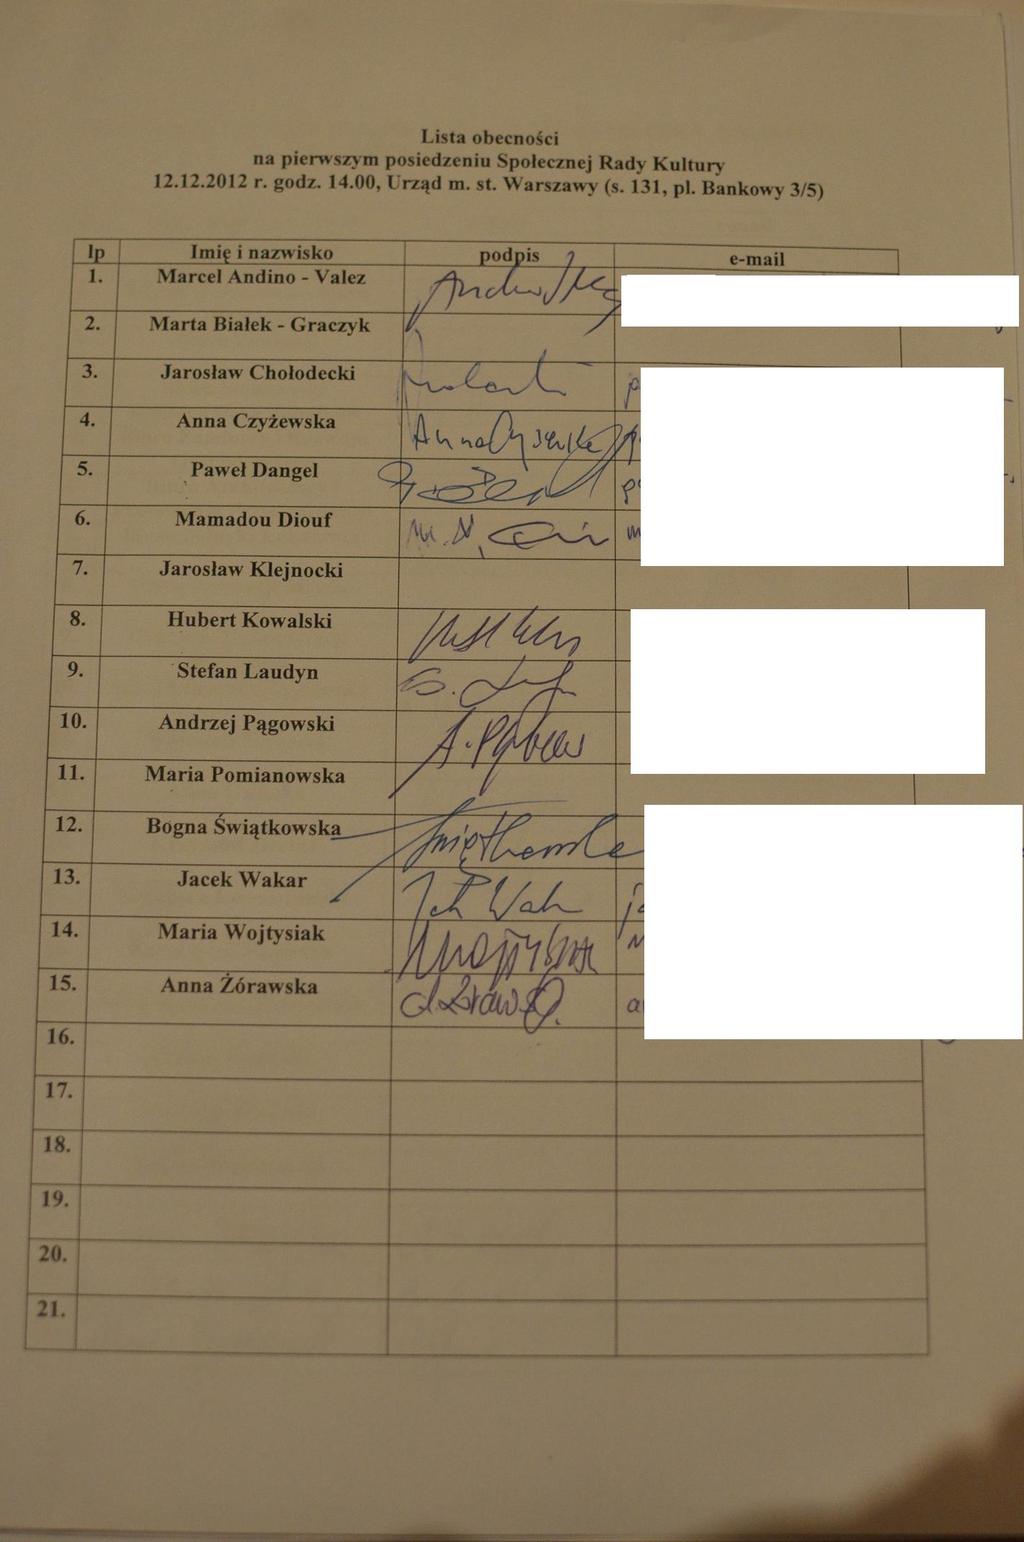 Lista obecności
na pierwszym posiedzeniu Społecznej Rady Kultury
12.12.2012 r. godz. 14.00, Urząd m. st. Warszawy (s. 131, pl. Bankowy 3/5)
lp Imię i nazwisko podpis e-mail
1. Marcel Andino - Valez
2. Marta Białek - Graczyk
3. Jarosław Chołodecki
4. Anna Czyżewska
5. Paweł Dangel
6. Mamadou Diouf
7. Jarosław Klejnocki
8. Hubert Kowalski
9. Stefan Laudyn
10. Andrzej Pągowski
11. Maria Pomianowska
12. Bogna Świątkowska
13. Jacek Wakar
14. Maria Wojtysiak
15. Anna Żórawska
16.
17.
18.
19.
20.
21.